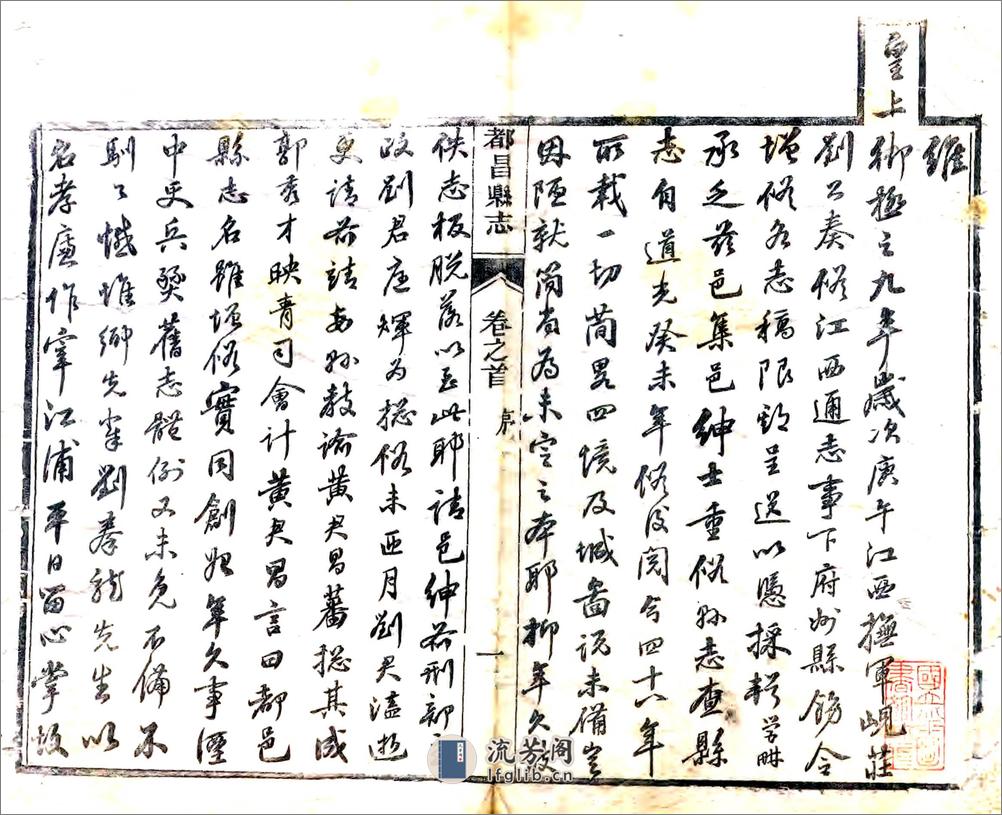 維
皇上
御極之九年歲次庚午江西撫軍峴莊
劉公奏修江西通志事下府州縣飭令
增修各志稿限期呈送以憑採輯學
承乏茲邑集邑紳士重修縣志查縣
志自道光癸未年修後閱今四十八年
所載一切簡畧四境及城圖說未備豈
因陋就簡尚為未定之本耶抑年久散
都昌縣志
卷之首
序
一
佚志板脫落以至此耶請邑紳前刑部
政劉君庭輝為總修未匝月劉君溘逝
更請前靖安縣教諭黃君昌蕃總其成
郭秀才映青司會計黃君昌言曰都邑
縣志名雖增修實同創始年久事湮
中更兵燹舊志體例又未免不備不
馴憾惟鄉先輩劉先生以
名孝廉作宰江浦平日留心掌故
流芳阁
lfglib.cn